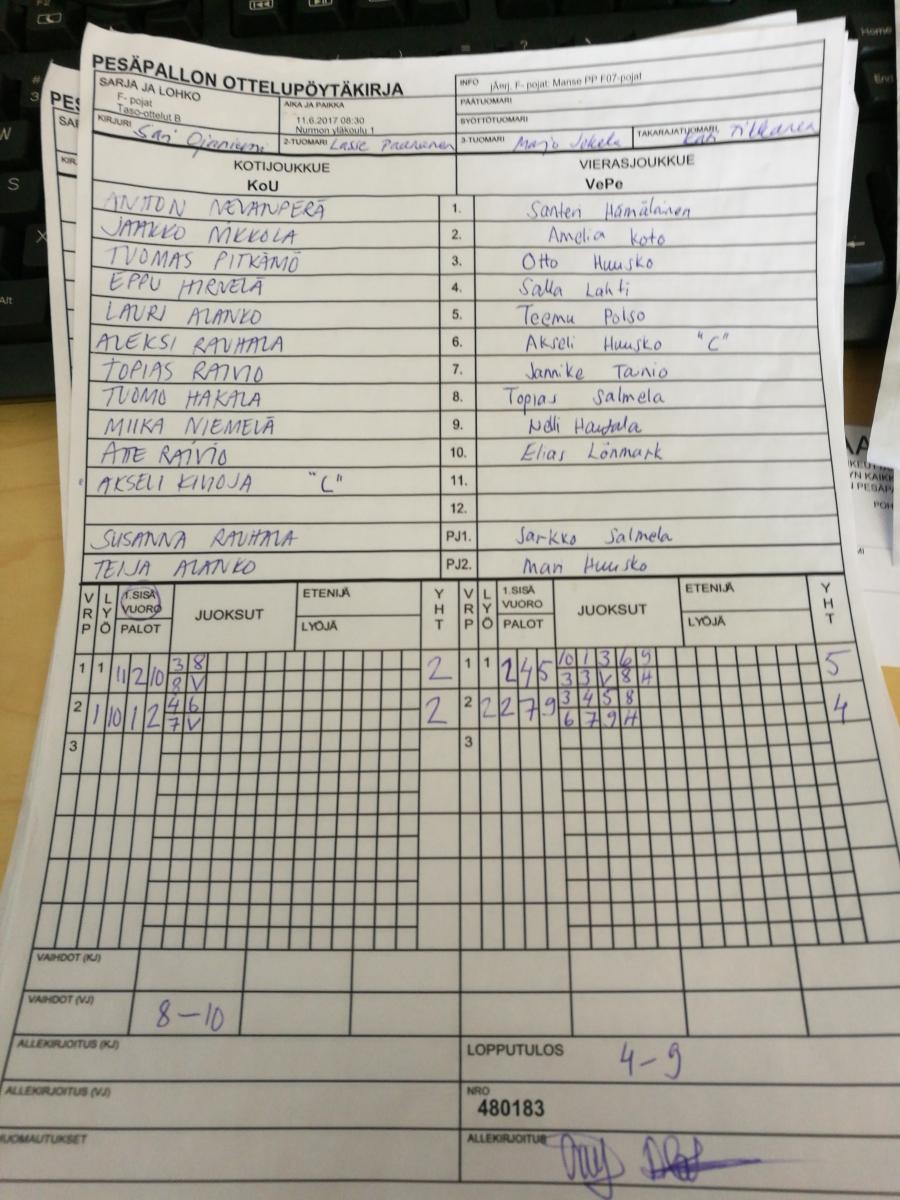 PESÄPALLON OTTELUPÖYTÄKIRJA
SARJA JA LOHKO
F- pojat
Taso-ottelut B
AIKA JA PAIKKA
11.6.2017 08:30
Nurmon yläkoulu 1
INFO jÄrj. F- pojat: Manse PP F07-pojat
PÄÄTUOMARI
SYÖTTÖTUOMARI
KIRJURI Sari
2-TUOMARI Lasse Paananen
3-TUOMARI Marjo Jokela
TAKARAJATUOMARI Kati Tikkanen
KOTIJOUKKUE VIERASJOUKKUE
KoU VePe
ANTTON NEVANPERÄ 1. Santeri Hämäläinen
JAAKKO NIKKOLA 2. Amelia Koto
TUOMAS PITKÄMÖ 3. Otto Huusko
EPPU HIRVELÄ 4. Salla Lahti
LAURI ALANKO 5. Teemu Polso
ALEKSI RAUHALA 6. Akseli Huusko "C"
TOPIAS RAIVIO 7. Jannike Tainio
TUOMO HAKALA 8. Topias Salmela
MIIKA NIEMELÄ 9. Nelli Hautala
ATTE RAIVIO 10. Elias Lönmark
AKSELI KIVIOJA "C" 11.
12.
SUSANNA RAUHALA PJ1. Jarkko Salmela
TEIJA ALANKO PJ2. Mari Huusko
VRP LYÖ 1.SISÄ VUORO PALOT JUOKSUT ETENIJÄ LYÖJÄ YHT VRP LYÖ 1.SISÄ VUORO PALOT JUOKSUT ETENIJÄ LYÖJÄ YHT
1 1 11 2 10 3 8 2 1 1 2 4 5 10 1 3 6 9 5
8 V 3 3 V 8 H
2 1 10 1 2 4 6 2 2 2 2 7 9 3 4 5 8 4
7 V 6 7 9 H
3 3
VAIHDOT (KJ)
VAIHDOT (VJ) 8-10
ALLEKIRJOITUS (KJ) LOPPUTULOS 4-9
ALLEKIRJOITUS (VJ) NRO
480183
HUOMAUTUKSET ALLEKIRJOITUS